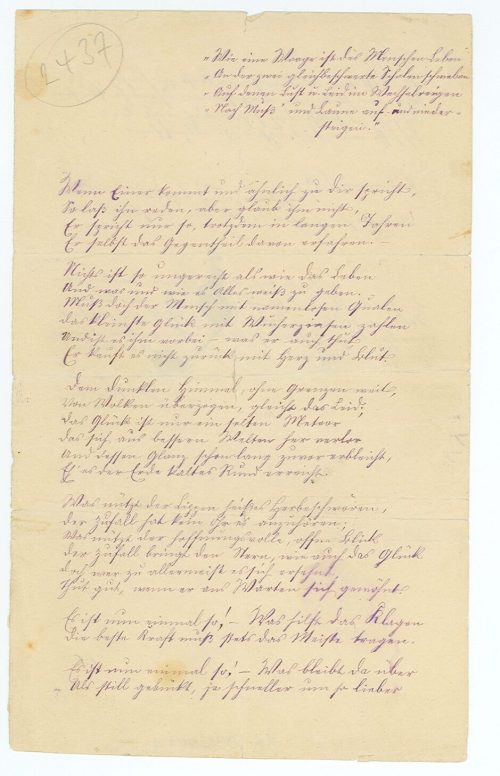 2437
"Wie eine Waage ist des Menschen Leben
"An der zwei gleichbeschwerte Schalen schweben
"Auf denen Lust u. Leid im Wechselreigen
"Nach Muß' und Laune auf- und nieder-
steigen."
Wenn Einer kommt und ähnlich zu dir spricht,
So laß ihn reden, aber glaub ihm nicht,
Er spricht nur so, trotzdem in langen Jahren
Er selbst das Gegentheil davon erfahren. –
Nichts ist so ungerecht als wie das Leben
Und was und wie es Alles weiß zu geben.
Muß doch der Mensch mit namenlosen Qualen
das kleinste Glück mit Wucherzinsen zahlen
Und ist es ihm vorbei – was er auch thut
Er kauft es nicht zurück mit Herz und Blut.
Dem dunklen Himmel, ohne Grenzen weit,
Von Wolken überzogen, gleicht das Leid;
das Glück ist nur ein selten Meteor
das sich aus bessern Welten her verlor
Und dessen Glanz schon lang zuvor erbleicht,
Eh' es der Erde kaltes Rund erreicht.
Was nützt der Lippen heißes Herbeschwören,
der Zufall hat kein Ohr es anzuhören;
Was nützt der hoffnungsvolle, offne Blick
der Zufall bringt den Stern, wie auch das Glück
doch wer zu allermeist es sich ersehnt,
Thut gut, wenn er ans Warten sich gewöhnt.
Es ist nun einmal so! – Was hilft das Klagen
die beste Kraft muß stets das Meiste tragen.
Es ist nun einmal so! – Was bleibt da über
Als still gebückt, je schneller um so lieber